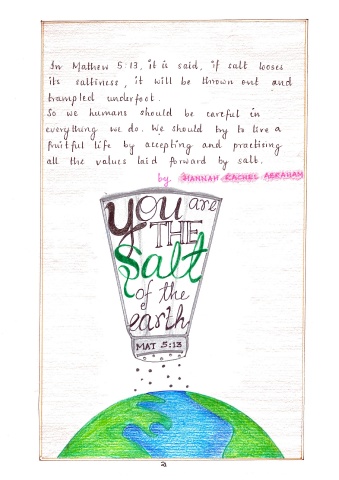 In Mathew 5:13, it is said, if salt looses
its saltiness, it will be thrown out and
trampled underfoot.
So we humans should be careful in
everything we do. We should try to live a
fruitful life by accepting and practising
all the values laid forward by salt.
by HANNAH RACHEL ABRAHAM
You are
THE
Salt
of the
earth
MAT 5:13